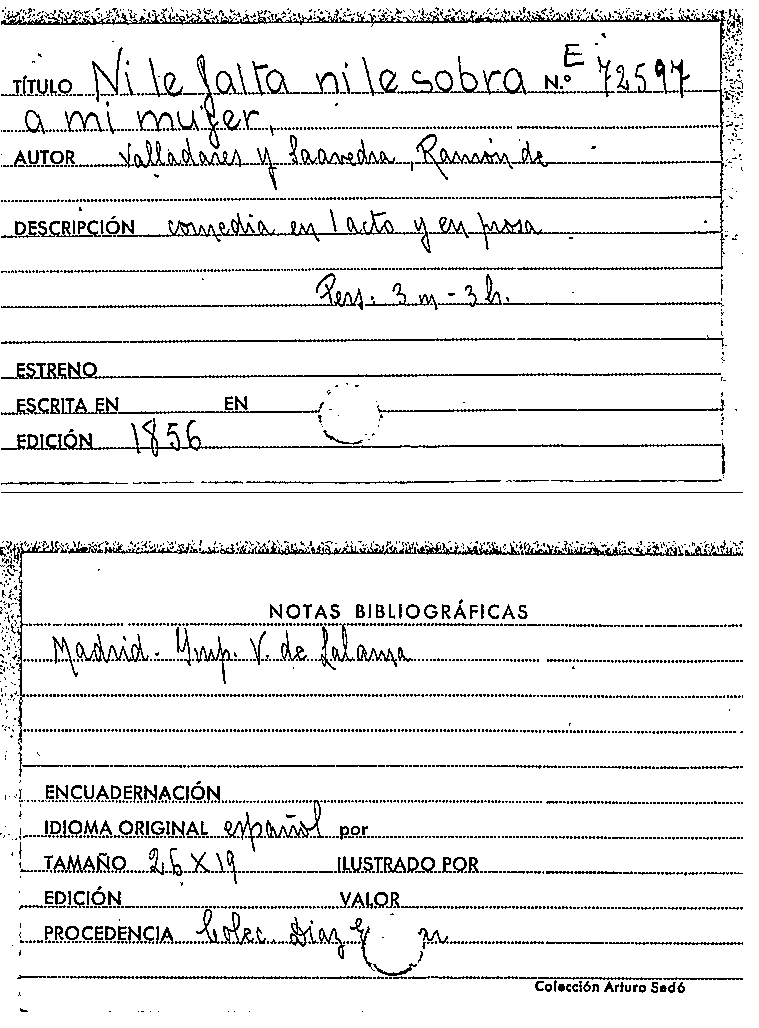 TÍTULO Ni le falta ni le sobra N.º E 72597
a mi mujer,
AUTOR Valladares y Saavedra, Ramón de
DESCRIPCIÓN comedia en 1 acto y en prosa
Pers. 3 m - 3 h.
ESTRENO
ESCRITA EN EN
EDICIÓN 1856
NOTAS BIBLIOGRÁFICAS
Madrid. Imp. V. de Lalama
ENCUADERNACIÓN
IDIOMA ORIGINAL español por
TAMAÑO 26 X 19 ILUSTRADO POR
EDICIÓN VALOR
PROCEDENCIA Colec. Díaz
Colección Arturo Sedó